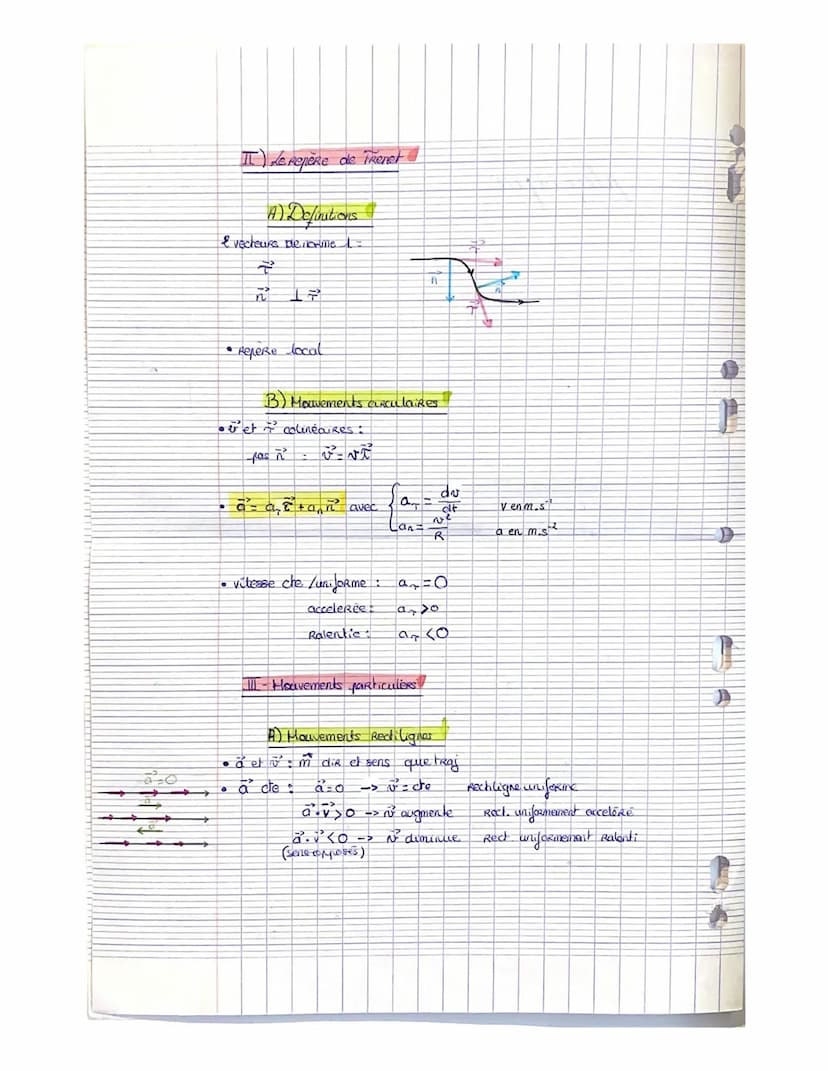 II) Le repère de Frenet
A) Definitions
2 vecteurs de norme 1 :
τ⃗
n⃗ ⊥ τ⃗
τ⃗
n⃗
n⃗
τ⃗
• repère local
B) Mouvements circulaires
• v⃗ et τ⃗ colinéaires :
pas n⃗ : v⃗ = v τ⃗
• a⃗ = aτ τ⃗ + an n⃗ avec { aτ = dv/dt v en m.s⁻¹
an = v²/R a en m.s⁻²
• vitesse cte / uniforme : aτ = 0
accelerée : aτ > 0
Ralentie : aτ < 0
III - Mouvements particuliers
A) Mouvements Rectilignes
• a⃗ et v⃗ : m̂ dir et sens que traj
a⃗ = 0
• a⃗ cte : a⃗ = 0 -> v⃗ = cte Rectiligne uniforme
a⃗
a⃗ · v⃗ > 0 -> v⃗ augmente Rect. uniformement accéléré
a⃗
a⃗ · v⃗ < 0 -> v⃗ diminue Rect uniformement Ralenti
(sens opposés)